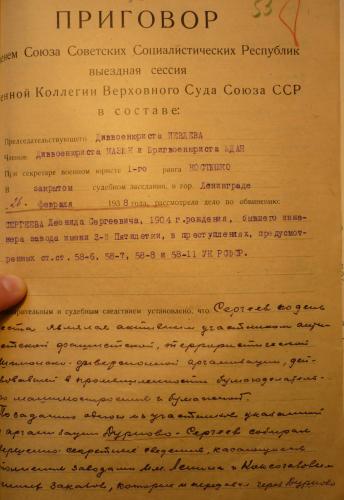 53
ПРИГОВОР
нем Союза Советских Социалистических Республик
выездная сессия
енной Коллегии Верховного Суда Союза ССР
в составе:
Председательствующего Диввоенюриста
Членов: Диввоенюриста и Бригвоенюриста ЖДАН
При секретаре военном юристе 1-го ранга КОСТЮШКО
В закрытом судебном заседании, в гор. Ленинграде
26. февраля 1938 года, рассмотрела дело по обвинению:
СЕРГЕЕВА Леонида Сергеевича, 1904 г.рождения, бывшего инже-
нера завода имени 2-й Пятилетки, в преступлениях, предусмот-
ренных ст.ст. 58-6, 58-7, 58-8 и 58-11 УК РСФСР.
арительным и судебным следствием установлено, что Сергеев по день
еста являлся активным участником
етской фашистской, террористической
диверсионной организации, дей-
вовавшей в промышленности бумагоделатель-
го машиностроения и бумажной.
По заданию одного из участников указанной
организации Дурново - Сергеев собирал
секретные сведения, касающиеся
заводами им. Ленина и
заказов, которые и передавал через Дурново